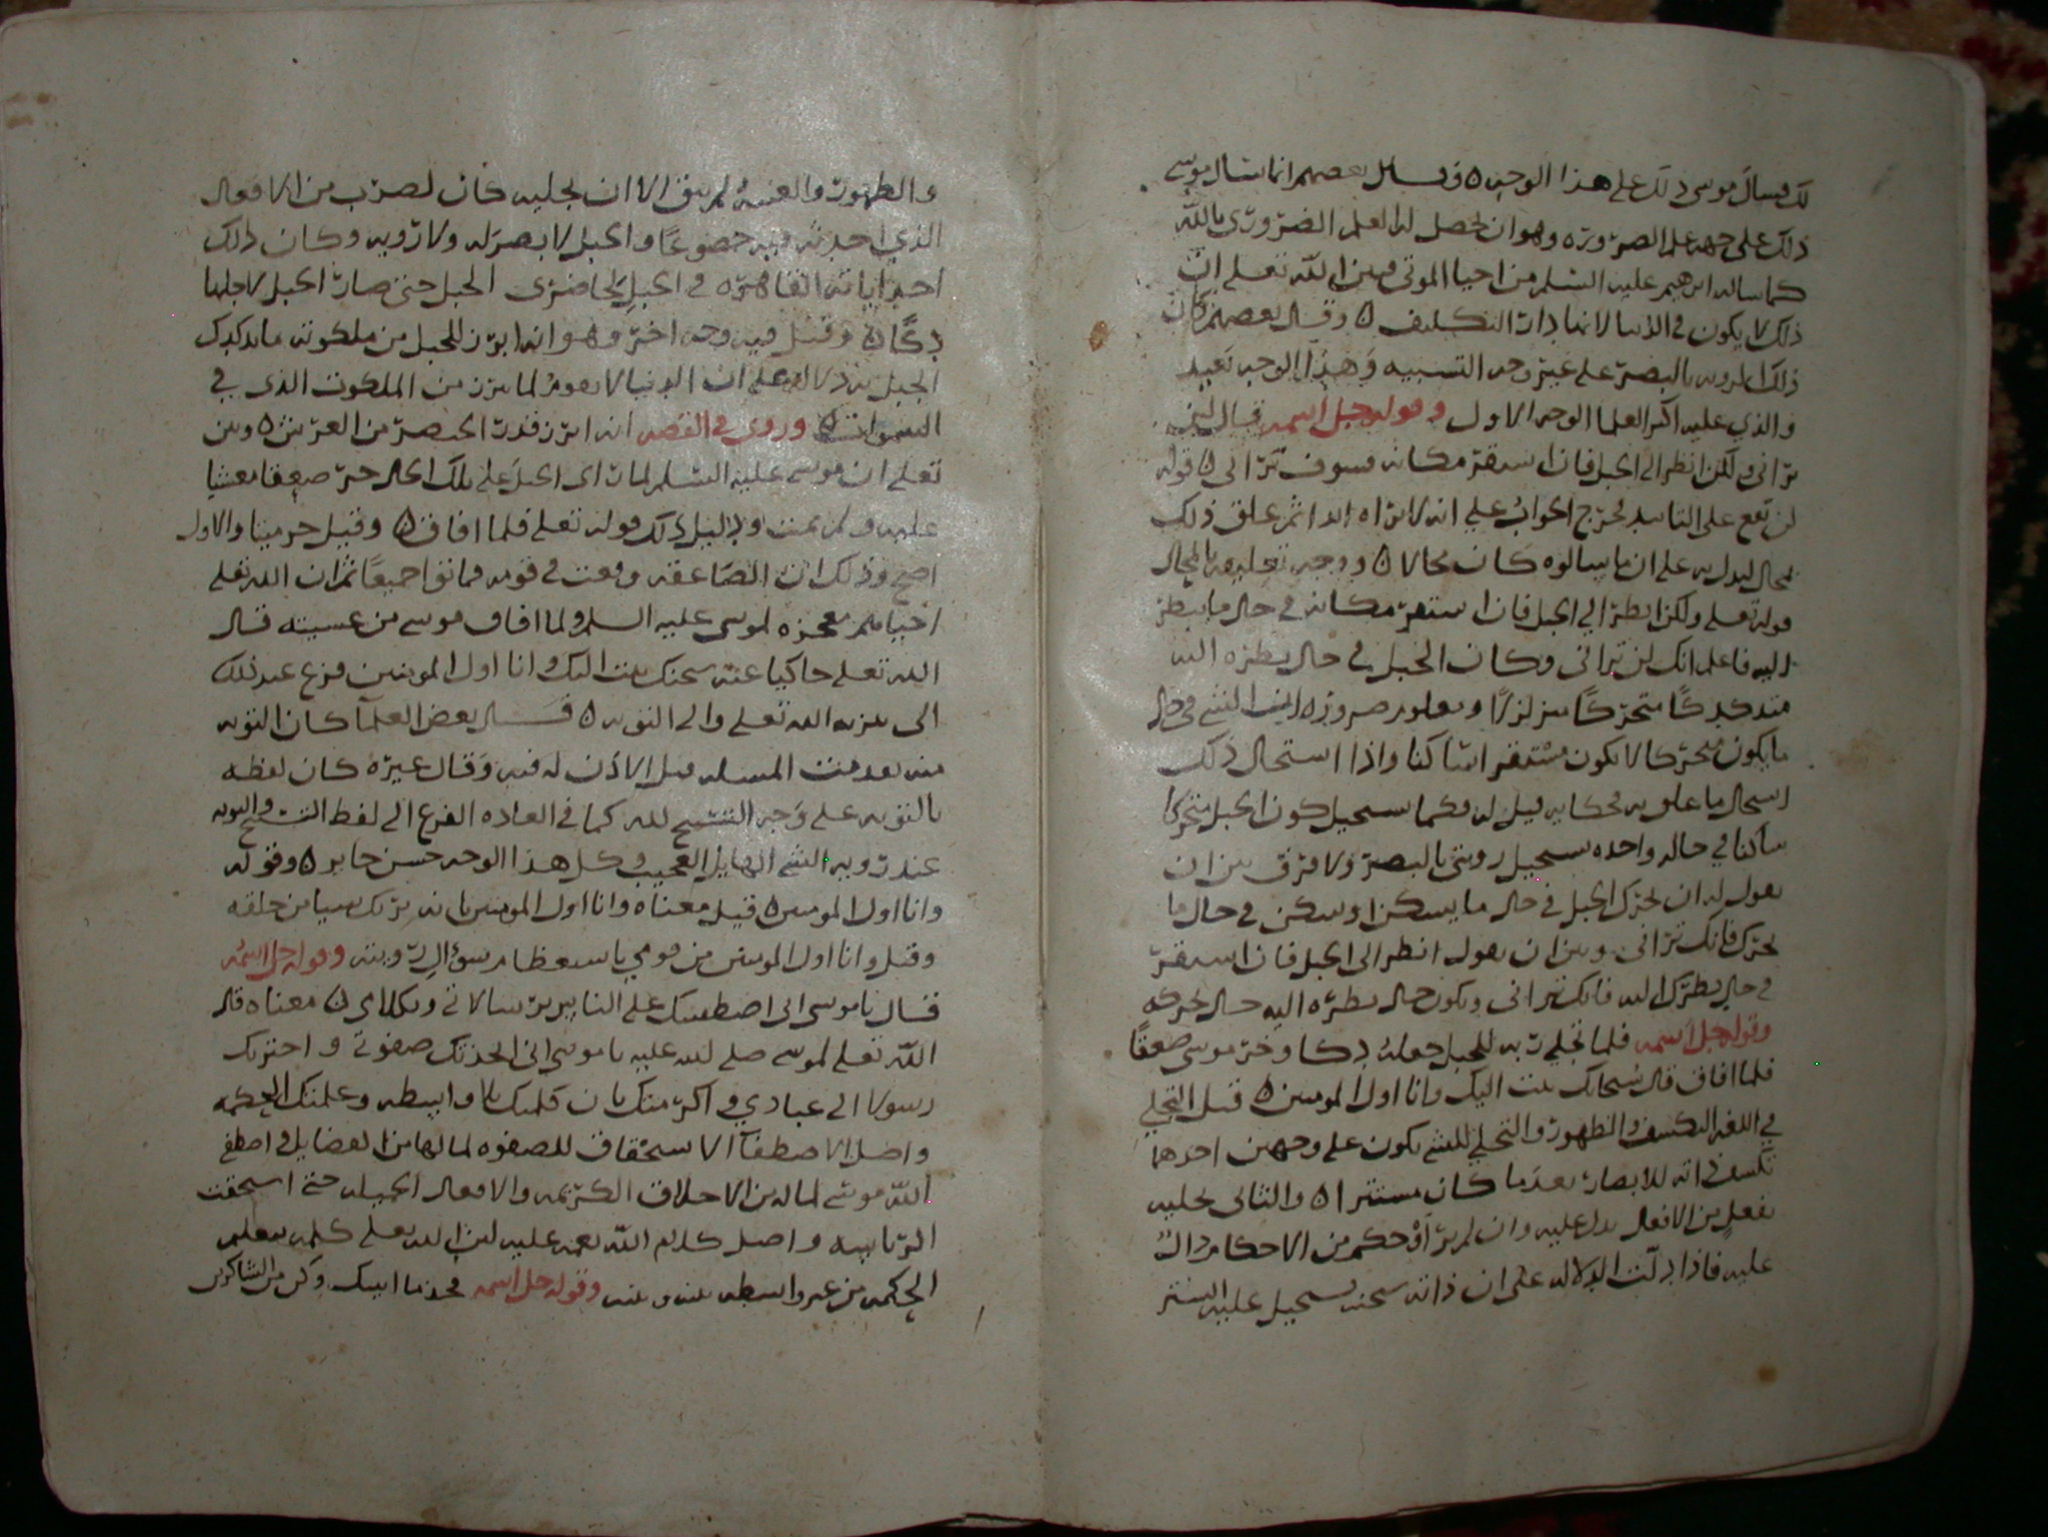 لك فسال موسى ذلك على هذا الوجه ٥ وقال بعضهم انما سال موسى
ذلك على جهة علم الضرورة وهو ان يحصل له العلم الضروري بالله
كما ساله ابرهيم عليه السلم من احيا الموتى فبين الله تعلى ان
ذلك لا يكون في الدنيا لانها دار التكليف ٥ وقال بعضهم كان
ذلك الروية بالبصر على غير وجه التشبيه وهذا الوجه بعيد
والذي عليه اكثر العلما الوجه الاول وقوله جل اسمه قال لن
تراني ولكن انظر الى الجبل فان استقر مكانه فسوف تراني ٥ قوله
لن تقع على التابيد فخرج الجواب على انه لا يراه ابدا ثم علق ذلك
بمحال ليدل به على ان ما سالوه كان محالا ٥ ووجه تعليقه بالمحال
قوله تعلى ولكن انظر الى الجبل فان استقر مكانه في حال ما ينظر
اليه فاعلم انك لن تراني وكان الجبل في حال نظره اليه
متدكدكا متحركا متزلزلا ومعلوم ضرورة ان الشي في حال
ما يكون متحركا لا يكون مستقرا ساكنا واذا استحال ذلك
استحال ما علق به فكانه قيل له فكما يستحيل كون الجبل متحركا
ساكنا في حالة واحده يستحيل رويتي بالبصر ولا فرق بين ان
يقول له ان تحرك الجبل في حال ما يسكن او سكن في حال ما
تحرك فانك تراني وبين ان يقول انظر الى الجبل فان استقر
في حال نظرك اليه فانك تراني ويكون حال نظره اليه حال تحركه
وقوله جل اسمه فلما تجلى ربه للجبل جعله دكا وخر موسى صعقا
فلما افاق قال سبحانك تبت اليك وانا اول المومنين ٥ قيل التجلي
في اللغه الكشف والظهور والتجلي للشي يكون على وجهين احدهما
تكشف ذاته للابصار بعد ما كان مستترا ٥ والثاني تجليه
بفعل من الافعال يدل عليه وان لم ير او حكم من الاحكام دال
عليه فاذا دلت الدلاله على ان ذاته سبحنه يستحيل عليه التستر
والظهور لم يبق الا ان تجليه كان لضرب من الافعال
الذي احدثه فيه خضوعا والجبل لا بصر له ولا روية وكان ذلك
احد اياته القاهره في الجبل حتى صار الجبل لاجلها
دكا ٥ وقيل فيه وجه اخر وهو انه ابرز للجبل من ملكوته ما تدكدك
الجبل به دلالة على ان الدنيا لا تقوم لما يبرز من الملكوت الذي في
السموات ٥ وروي في القصه انه ابرز قدر الخنصر من العرش ٥ وبين
تعلى ان موسى عليه السلم لما راى الجبل على تلك الحال خر صعقا مغشيا
عليه ولم يمت ودليل ذلك قوله تعلى فلما افاق ٥ وقيل خر ميتا والاول
اصح وذلك ان الصاعقه وقعت في قومه فماتوا جميعا ثم ان الله تعلى
احياهم معجزه لموسى عليه السلم ولما افاق موسى من غشيته قال
الله تعلى حاكيا عنه سبحنك تبت اليك وانا اول المومنين فزع عند ذلك
الى تنزيه الله تعلى والى التوبه ٥ قال بعض العلما كان التوبه
منه تقدمت المسله قبل الاذن له فيه وقال غيره كان لفظه
بالتوبه على وجه التسبيح لله كما في العاده الفزع الى لفظ التسبيح والتوبه
عند روية الشي الهايل العجيب وكل هذا الوجه حسن جايز ٥ وقوله
وانا اول المومنين ٥ قيل معناه وانا اول المومنين بانه لا يراك شيا من خلقه
وقيل وانا اول المومنين من قومي باستعظام سوال الروية وقوله جل اسمه
فقال يا موسى اني اصطفيتك على الناس برسالاتي وبكلامي ٥ معناه قال
الله تعلى لموسى صلى الله عليه يا موسى اني اتخذتك صفوتي واخترتك
رسولا الى عبادي واكرمتك بان كلمتك بلا واسطه وعلمتك الحكمه
واصل الاصطفا الاستحقاق للصفوه لما لها من الفضايل واصطفى
الله موسى لما له من الاخلاق الكريمه والافعال الجميله حتى استحقت
واصل كلام الله نعمه عليه لان الله تعلى كلمه بتعليم
الحكمه من غير واسطه بينه وبينه وقوله جل اسمه فخذ ما اتيتك وكن من الشاكرين